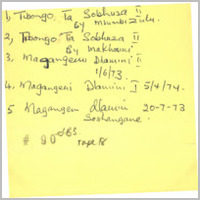 1, Tibongo, Ta Sobhuza II
By Mhumbi Zulu.
2, Tibongo, Ta Sobhuza II
By Makhosini
3, Magangeni Dlamini I
1/6/73.
4, Magangeni Dlamini I 5/4/74.
5 Magangeni Dlamini 20-7-73
Soshangane.
# 90 Tape